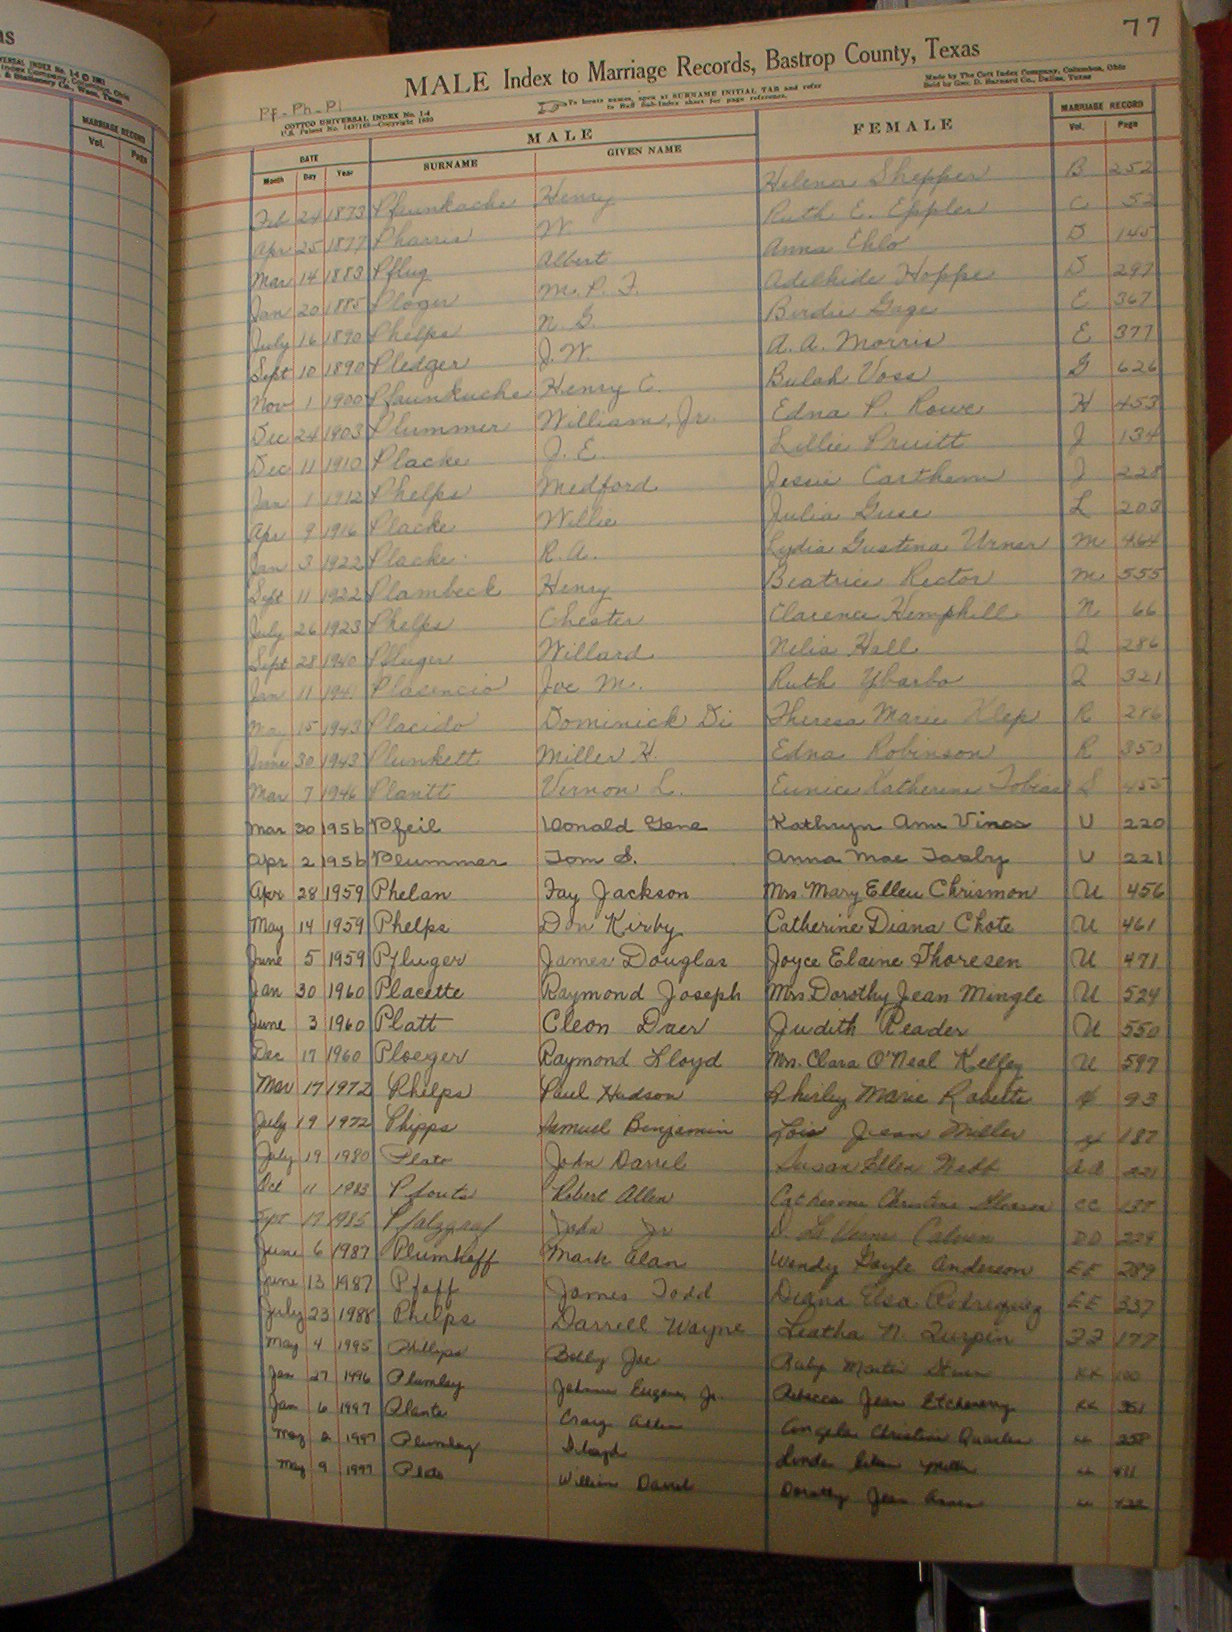 as
MARRIAGE RECORD
Vol. Page
77
MALE Index to Marriage Records, Bastrop County, Texas
Pf-Ph-Pl
COTTCO UNIVERSAL INDEX No. 1-4
To locate names, open at SURNAME INITIAL TAB and refer
to Buff Sub-Index sheet for page reference.
Made by The Cott Index Company, Columbus, Ohio
Sold by Geo. D. Barnard Co., Dallas, Texas
DATE MALE FEMALE MARRIAGE RECORD
Month Day Year SURNAME GIVEN NAME Vol. Page
Feb 24 1873 Pfaunkuche Henry Helena Shepper B 252
Apr 25 1877 Pharris W Ruth E. Eppler C 52
Mar 14 1883 Pflug Albert Anna Ehlo D 145
Jan 20 1885 Ploger M. P. F. Adelheide Hoppe D 297
July 16 1890 Phelps N. G. Birdie Gage E 367
Sept 10 1890 Pledger J. W. A. A. Morris E 377
Nov 1 1900 Pfaunkuche Henry C. Bulah Voss G 626
Dec 24 1903 Plummer William, Jr. Edna P. Rowe H 453
Dec 11 1910 Placke J. E. Lillie Pruitt J 134
Jan 1 1912 Phelps Medford Jessie Carthem J 228
Apr 9 1916 Placke Willie Julia Guse L 203
Jan 3 1922 Placke R. A. Lydia Gustena Urner M 464
Sept 11 1922 Plambeck Henry Beatrice Rector M 555
July 26 1923 Phelps Chester Clarence Hemphill N 66
Sept 28 1940 Pfluger Willard Nelia Hall Q 286
Jan 11 1941 Plasencio Joe M. Ruth Ybarbo Q 321
May 15 1943 Placido Dominick Di Theresa Marie Klep R 286
June 30 1943 Plunkett Miller H. Edna Robinson R 350
Mar 7 1946 Plantt Vernon L. Eunice Katherine Tobias S 455
Mar 30 1956 Pfeil Donald Gene Kathryn Ann Vinas U 220
Apr 2 1956 Plummer Tom S. Anna Mae Tasby U 221
Apr 28 1959 Phelan Fay Jackson Mrs. Mary Ellen Chrismon U 456
May 14 1959 Phelps Don Kirby Catherine Diana Chote U 461
June 5 1959 Pfluger James Douglas Joyce Elaine Thoresen U 471
Jan 30 1960 Placette Raymond Joseph Mrs Dorothy Jean Mingle U 524
June 3 1960 Platt Cleon Daer Judith Reader U 550
Dec 17 1960 Ploeger Raymond Lloyd Mrs. Clara O'Neal Kelley U 597
Mar 17 1972 Phelps Paul Hudson Shirley Marie Roberts 93
July 19 1972 Phipps Samuel Benjamin Lois Jean Miller 187
July 19 1980 Plato John Darrel Susan Ellen Webb AA 221
Oct 11 1983 Pfouts Robert Allen Catherine Christine CC 137
Sept 17 1985 Pfalzgraf John Jr D. La Verne Calvin DD 224
June 6 1987 Plumhoff Mark Alan Wendy Gayle Anderson EE 289
June 13 1987 Pfaff James Todd Diana Elsa Rodriquez EE 337
July 23 1988 Phelps Darrell Wayne Leatha N. Turpin 177
May 4 1995 Phillips Billy Joe Ruby KK 100
Jan 27 1996 Plumley Johnnie Eugene, Jr. Rebecca Jean Etcheverry KK 351
Jan 6 1997 Plante Craig Allen Angela Christine Quarles LL 258
May 2 1997 Plumley Lloyd Linda Miller LL 411
May 9 1997 Plato William David Dorothy Jean LL 422